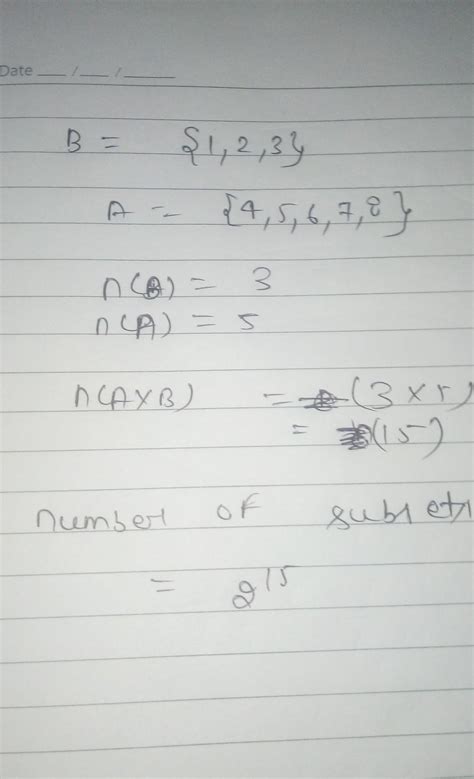 Date __/__/____
B = {1,2,3}
A = {4,5,6,7,8}
n(B) = 3
n(A) = 5
n(A×B) = (3×5)
= (15)
number of subsets
= 2^15